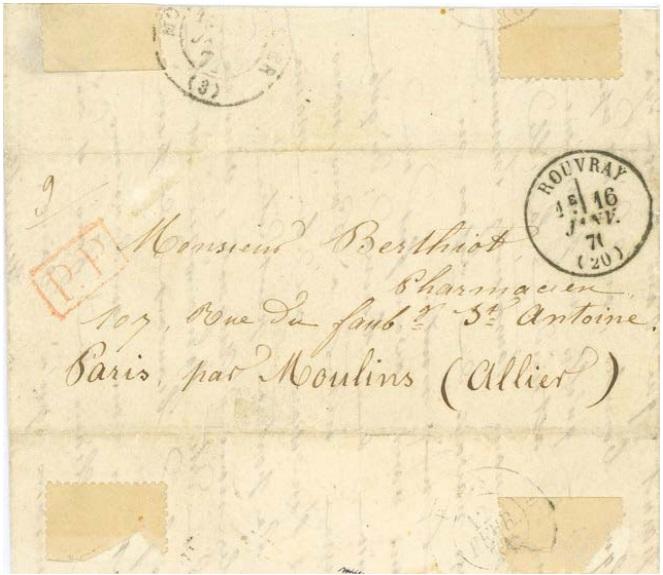 (3)
ROUVRAY
1E 16
JANV.
71
(20)
9
P.P.
Monsieur Berthiot,
Pharmacien,
107, Rue du faubg St Antoine.
Paris, par Moulins (Allier)